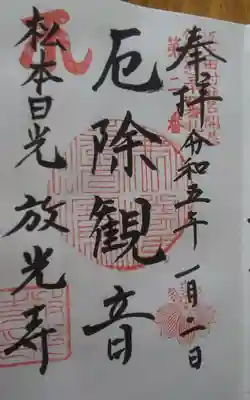 奉拝 令和五年一月二日
厄除観音
松本日光 放光寺